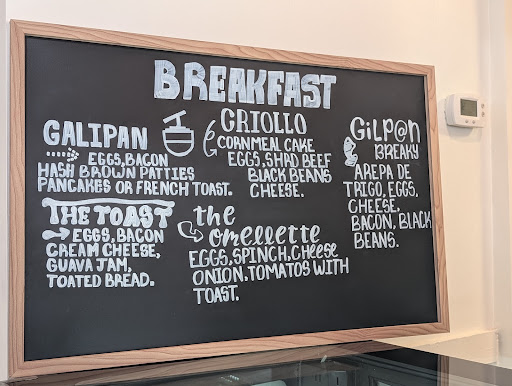 BREAKFAST
GALIPAN
EGGS, BACON
HASH BROWN PATTIES
PANCAKES OR FRENCH TOAST.
CRIOLLO
CORNMEAL CAKE
EGGS, SHRD BEEF
BLACK BEANS
CHEESE.
GiLP@N
BREAKY
AREPA DE
TRIGO, EGGS,
CHEESE,
BACON, BLACK
BEANS.
THE TOAST
EGGS, BACON
CREAM CHEESE,
GUAVA JAM,
TOATED BREAD.
the
omellette
EGGS, SPINCH, CHeese
ONION, TOMATOS WITH
TOAST.